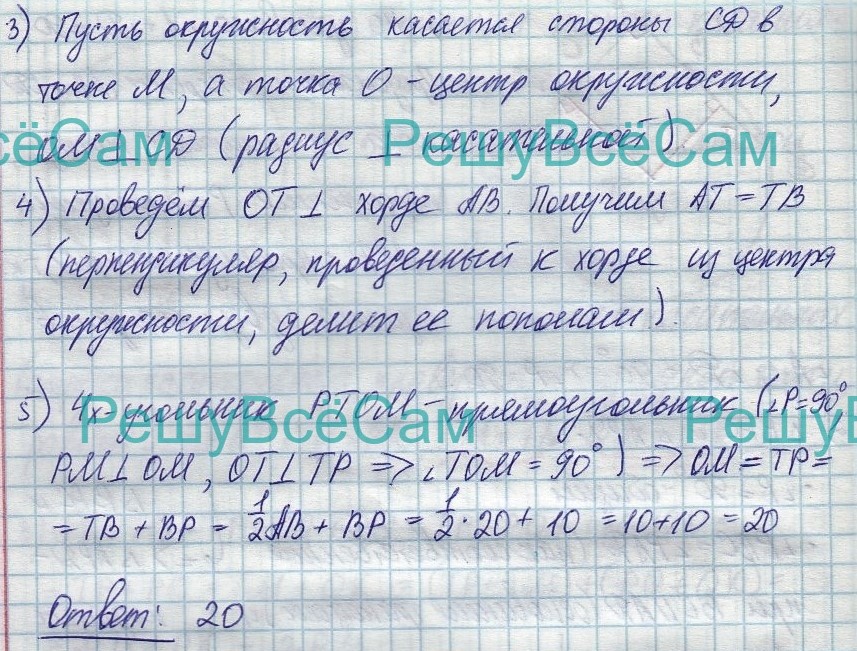 3) Пусть окружность касается стороны CD в
точке M, а точка O - центр окружности,
OM⊥CD (радиус ⊥ касательной)
РешуВсёСам
4) Проведём OT⊥ хорде AB. Получим AT = TB
(перпендикуляр, проведенный к хорде из центра
окружности, делит ее пополам).
5) 4х-угольник PTOM - прямоугольник (∠P=90°,
РешуВсёСам
PM⊥OM, OT⊥TP => ∠TOM = 90°) => OM = TP =
= TB + BP = 1/2 AB + BP = 1/2 · 20 + 10 = 10+10 = 20
Ответ: 20